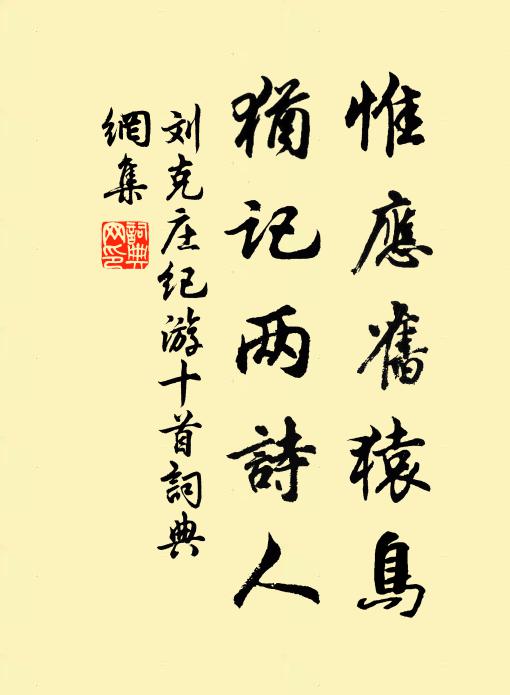 惟應舊猿鳥
猶记两詩人
刘克庄纪游十首詞典
網集
詞典
网印